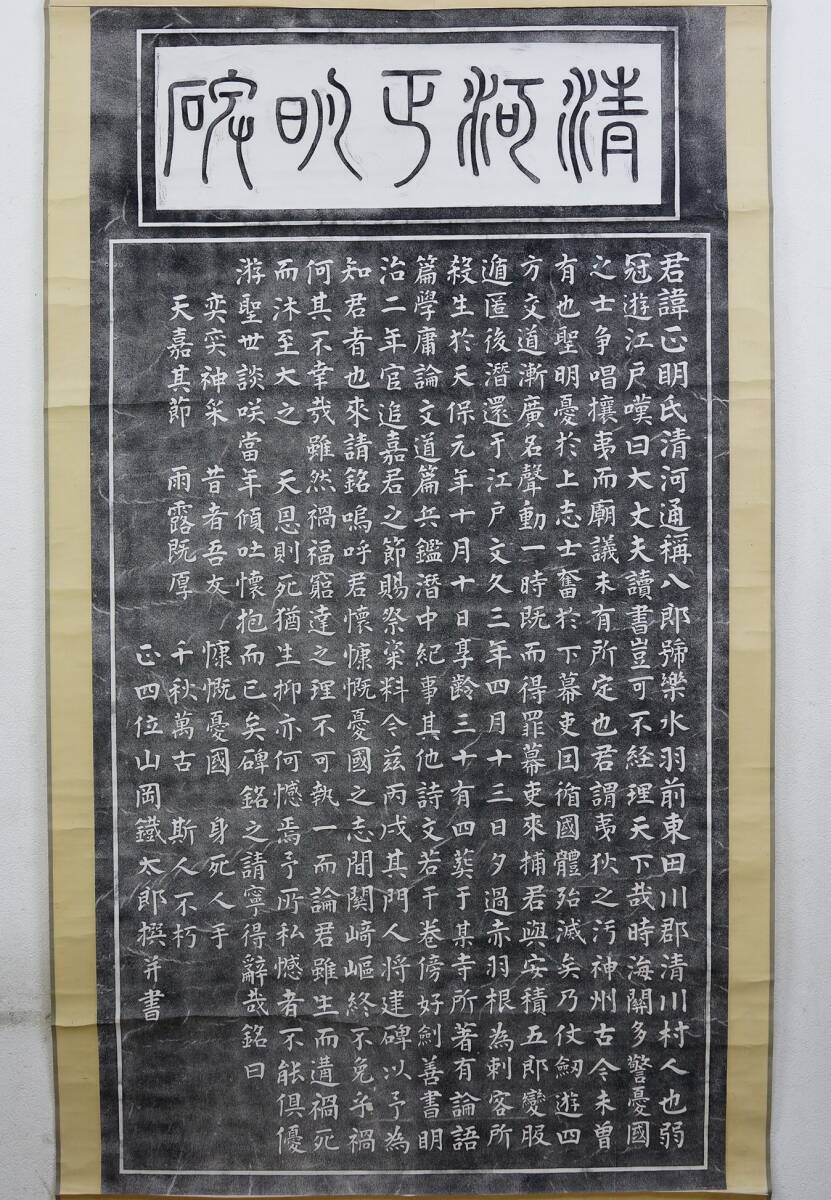 清河正明碑
君諱正明氏清河通稱八郎號樂水羽前東田川郡清川村人也弱
冠遊江戶嘆曰大丈夫讀書豈可不経理天下哉時海關多警憂國
之士争唱攘夷而廟議未有所定也君謂夷狄之汚神州古今未曽
有也聖明憂於上志士奮於下幕吏因循國體殆滅矣乃仗劔遊四
方交道漸廣名聲動一時既而得罪幕吏來捕君與安積五郎變服
遁匿後潛還于江戶文久三年四月十三日夕過赤羽根為刺客所
殺生於天保元年十月十日享齡三十有四葬于某寺所著有論語
篇學庸論文道篇兵鑑潛中紀事其他詩文若干巻傍好劍善書明
治二年官追嘉君之節賜祭粢料今兹丙戌其門人将建碑以予為
知君者也來請銘嗚呼君懷慷慨憂國之志間關﨑嶇終不免乎禍
何其不幸哉雖然禍福窮達之理不可執一而論君雖生而遘禍死
而沐至大之　天恩則死猶生抑亦何憾焉予所私憾者不能倶優
游聖世談咲當年傾吐懷抱而已矣碑銘之請寧得辭哉銘曰
奕奕神采　昔者吾友　慷慨憂國　身死人手
天嘉其節　雨露既厚　千秋萬古　斯人不朽
正四位山岡鐵太郎撰并書